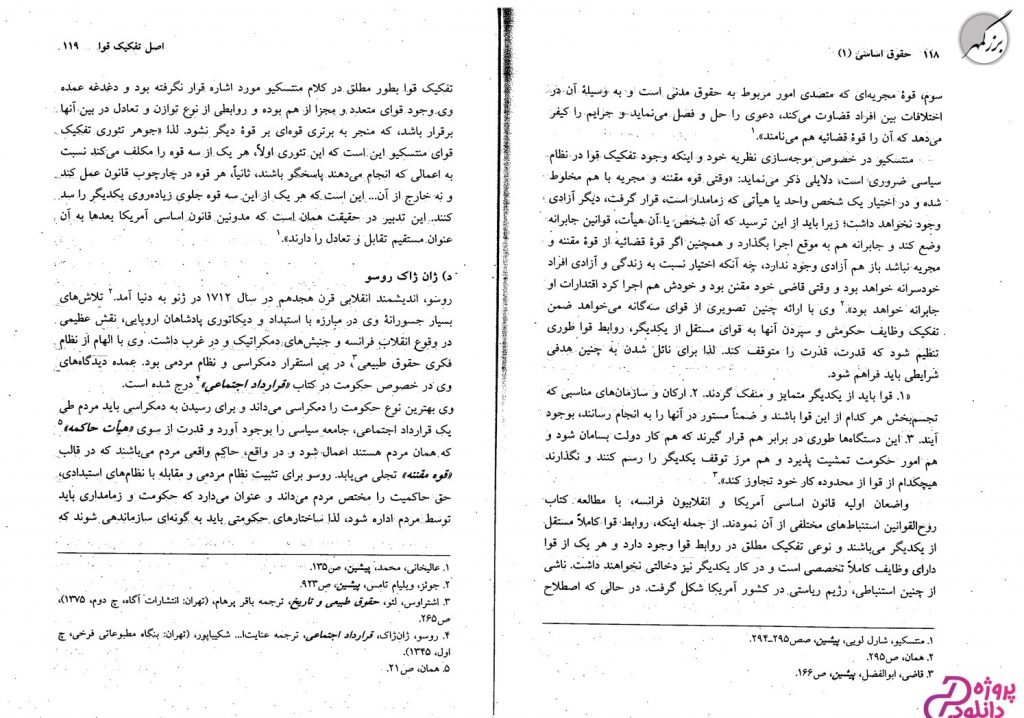 بزرگمهر
۱۱۸ حقوق اساسی (۱)
سوم، قوهٔ مجریه‌ای که متصدی امور مربوط به حقوق مدنی است و به وسیلهٔ آن در
اختلافات بین افراد قضاوت می‌کند، دعوی را حل و فصل می‌نماید و جرایم را کیفر
می‌دهد که آن را قوهٔ قضائیه هم می‌نامند».۱
منتسکیو در خصوص موجه‌سازی نظریه خود و اینکه وجود تفکیک قوا در نظام
سیاسی ضروری است، دلایلی ذکر می‌نماید: «وقتی قوه مقننه و مجریه با هم مخلوط
شده و در اختیار یک شخص واحد یا هیأتی که زمامدار است، قرار گرفت، دیگر آزادی
وجود نخواهد داشت؛ زیرا باید از این ترسید که آن شخص یا آن هیأت، قوانین جابرانه
وضع کند و جابرانه هم به موقع اجرا بگذارد و همچنین اگر قوهٔ قضائیه از قوهٔ مقننه و
مجریه نباشد باز هم آزادی وجود ندارد، چه آنکه اختیار نسبت به زندگی و آزادی افراد
خودسرانه خواهد بود و وقتی قاضی خود مقنن بود و خودش هم اجرا کرد اقتدارات او
جابرانه خواهد بود».۲ وی با ارائه چنین تصویری از قوای سه‌گانه می‌خواهد ضمن
تفکیک وظایف حکومتی و سپردن آنها به قوای مستقل از یکدیگر، روابط قوا طوری
تنظیم شود که قدرت، قدرت را متوقف کند. لذا برای نائل شدن به چنین هدفی
شرایطی باید فراهم شود.
«۱. قوا باید از یکدیگر متمایز و منفک گردند. ۲. ارکان و سازمان‌های مناسبی که
تجسم‌بخش هر کدام از این قوا باشند و ضمناً مستور در آنها را به انجام رسانند، بوجود
آیند. ۳. این دستگاه‌ها طوری در برابر هم قرار گیرند که هم کار دولت بسامان شود و
هم امور حکومت تمشیت پذیرد و هم مرز توقف یکدیگر را رسم کنند و نگذارند
هیچکدام از قوا از محدوده کار خود تجاوز کند».۳
واضعان اولیه قانون اساسی آمریکا و انقلابیون فرانسه، با مطالعه کتاب
روح‌القوانین استنباط‌های مختلفی از آن نمودند. از جمله اینکه، روابط قوا کاملاً مستقل
از یکدیگر می‌باشند و نوعی تفکیک مطلق در روابط قوا وجود دارد و هر یک از قوا
دارای وظایف کاملاً تخصصی است و در کار یکدیگر نیز دخالتی نخواهند داشت. ناشی
از چنین استنباطی، رژیم ریاستی در کشور آمریکا شکل گرفت. در حالی که اصطلاح
۱. منتسکیو، شارل لویی، پیشین، صص۲۹۵ـ۲۹۴.
۲. همان، ص۲۹۵.
۳. قاضی، ابوالفضل، پیشین، ص۱۶۶.
اصل تفکیک قوا ۱۱۹
تفکیک قوا بطور مطلق در کلام منتسکیو مورد اشاره قرار نگرفته بود و دغدغه عمده
وی وجود قوای متعدد و مجزا از هم بوده و روابطی از نوع توازن و تعادل در بین آنها
برقرار باشد، که منجر به برتری قوه‌ای بر قوهٔ دیگر نشود. لذا «جوهر تئوری تفکیک
قوای منتسکیو این است که این تئوری اولاً، هر یک از سه قوه را مکلف می‌کند نسبت
به اعمالی که انجام می‌دهند پاسخگو باشند، ثانیاً، هر قوه در چارچوب قانون عمل کند
و نه خارج از آن... این است که هر یک از این سه قوه جلوی زیاده‌روی یکدیگر را سد
کنند. این تدبیر در حقیقت همان است که مدونین قانون اساسی آمریکا بعدها به آن
عنوان مستقیم تقابل و تعادل را دارند».۱
د) ژان ژاک روسو
روسو، اندیشمند انقلابی قرن هجدهم در سال ۱۷۱۲ در ژنو به دنیا آمد.۲ تلاش‌های
بسیار جسورانهٔ وی در مبارزه با استبداد و دیکتاتوری پادشاهان اروپایی، نقش عظیمی
در وقوع انقلاب فرانسه و جنبش‌های دمکراتیک و در غرب داشت. وی با الهام از نظام
فکری حقوق طبیعی۳، در پی استقرار دمکراسی و نظام مردمی بود. عمده دیدگاه‌های
وی در خصوص حکومت در کتاب «قرارداد اجتماعی»۴ درج شده است.
وی بهترین نوع حکومت را دمکراسی می‌داند و برای رسیدن به دمکراسی باید مردم طی
یک قرارداد اجتماعی، جامعه سیاسی را بوجود آورد و قدرت از سوی «هیأت حاکمه»۵
که همان مردم هستند اعمال شود و در واقع، حاکم واقعی مردم می‌باشند که در قالب
«قوه مقننه» تجلی می‌یابد. روسو برای تثبیت نظام مردمی و مقابله با نظام‌های استبدادی،
حق حاکمیت را مختص مردم می‌داند و عنوان می‌دارد که حکومت و زمامداری باید
توسط مردم اداره شود، لذا ساختارهای حکومتی باید به گونه‌ای سازماندهی شوند که
۱. عالیخانی، محمد، پیشین، ص۱۳۵.
۲. جونز، ویلیام تامس، پیشین، ص۹۲۳.
۳. اشتراوس، لئو، حقوق طبیعی و تاریخ، ترجمه باقر پرهام، (تهران: انتشارات آگاه، چ دوم، ۱۳۷۵)،
ص۲۶۵.
۴. روسو، ژان‌ژاک، قرارداد اجتماعی، ترجمه عنایت‌ا... شکیباپور، (تهران: بنگاه مطبوعاتی فرخی، چ
اول، ۱۳۴۵).
۵. همان، ص۲۱.
پروژه
دانلود